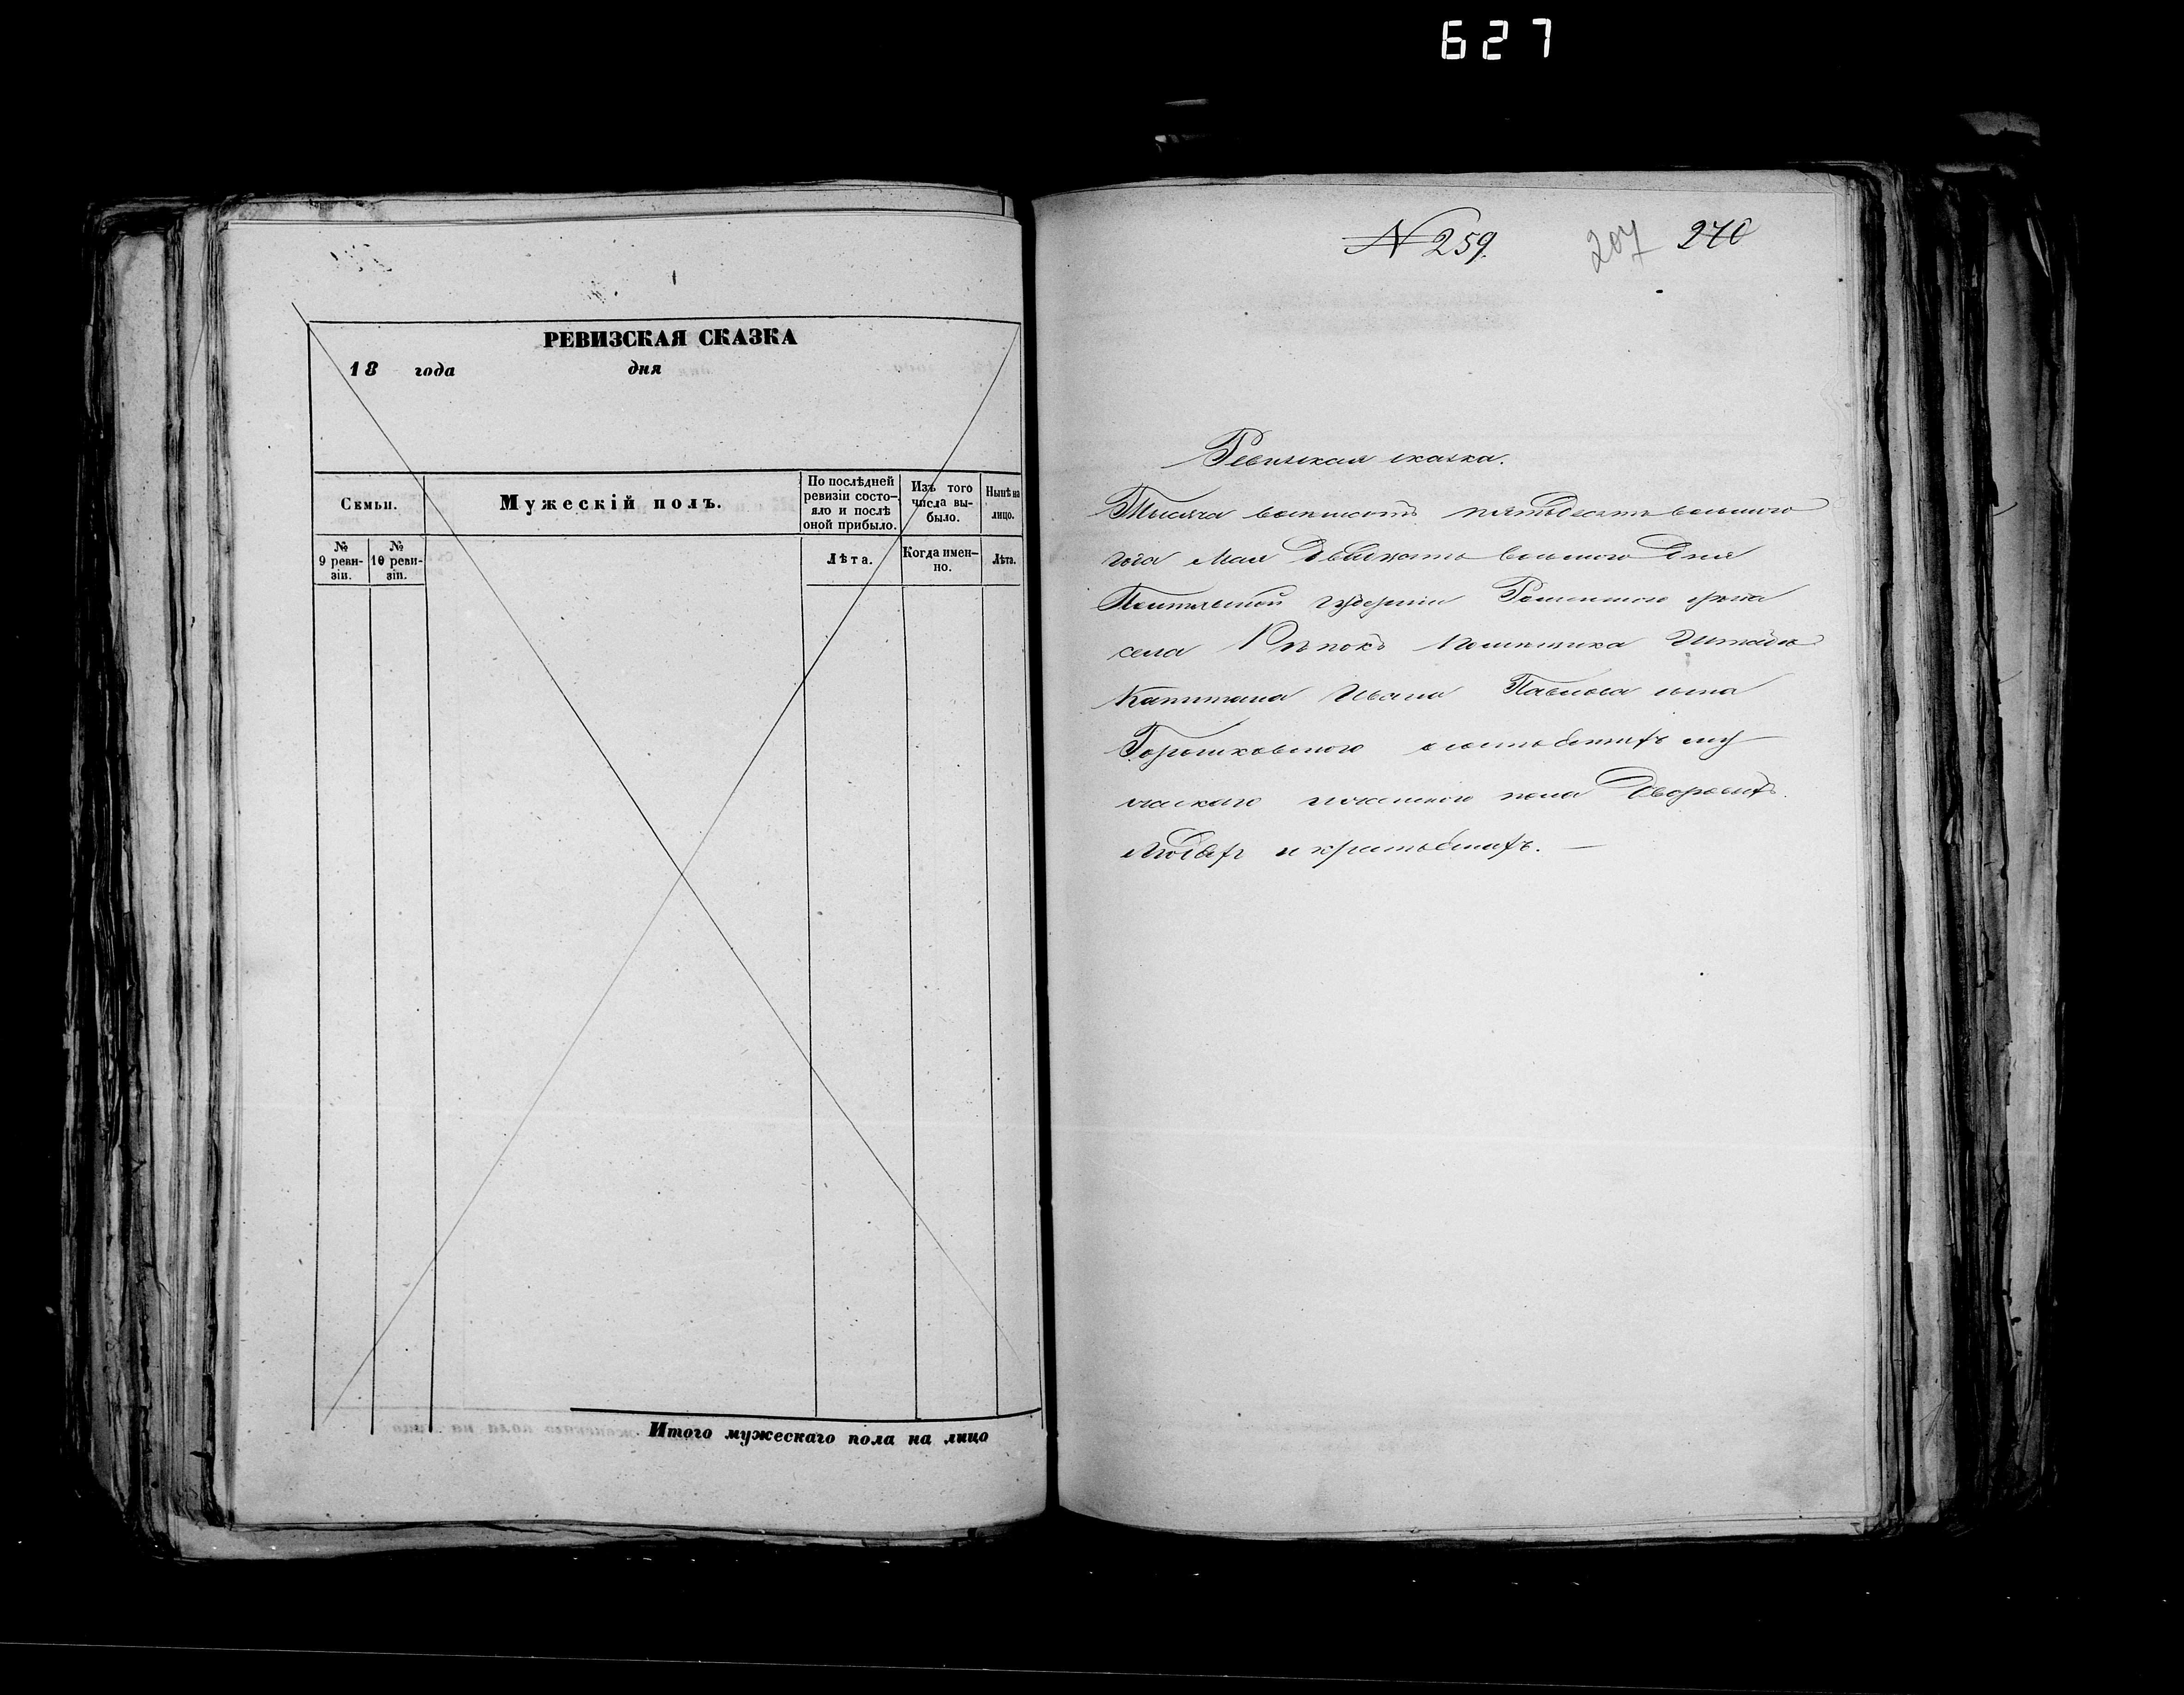 627
РЕВИЗСКАЯ СКАЗКА
18 года дня
Семьи.
Мужескій полъ.
По послѣдней ревизіи состояло и послѣ оной прибыло.
Изъ того числа выбыло.
Нынѣ на лицо.
№ 9 ревизіи.
№ 10 ревизіи.
Лѣта.
Когда именно.
Лѣта.
Итого мужескаго пола на лицо
N 259.
207
270
Ревизская сказка.
Тысяча восемьсотъ пятьдесятъ восьмого
года Мая двадцать восьмого Дня
Полтавской губерніи Роменскаго
села помещика Штабсъ
Капитана Ивана Павлова сына
о состоящихъ му
жескаго и женскаго пола Дворовыхъ
людяхъ и крестьянахъ.